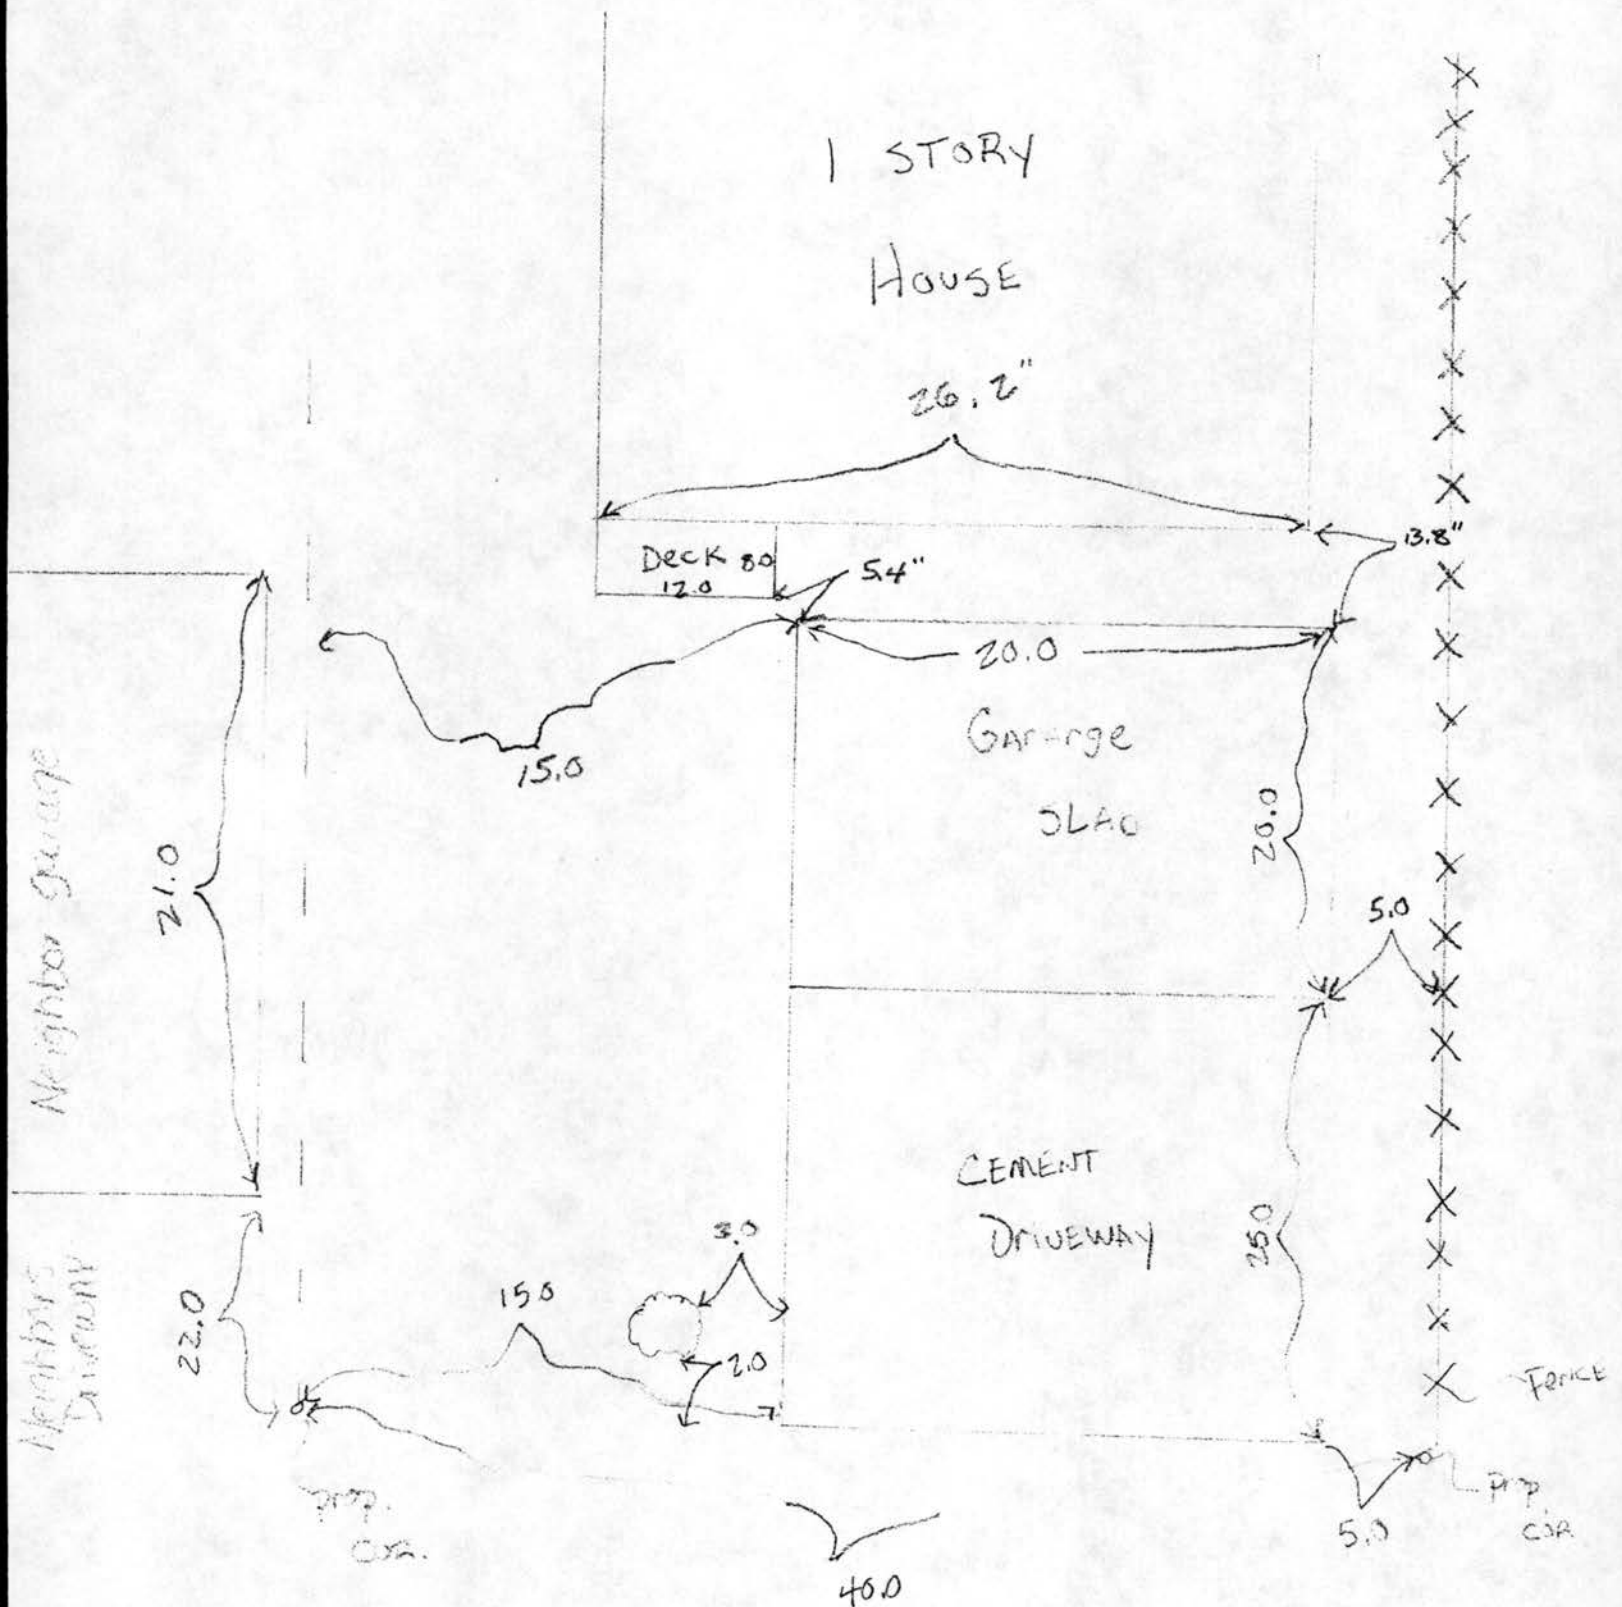 1 STORY
HOUSE
26.2"
13.8"
Deck 8.0
12.0
5.4"
20.0
15.0
Gararge
SLAB
20.0
Neighbor garage
21.0
5.0
CEMENT
DRIVEWAY
25.0
3.0
15.0
2.0
22.0
Neighbors
Driveway
Fence
prop.
cor.
prop
cor
5.0
40.0